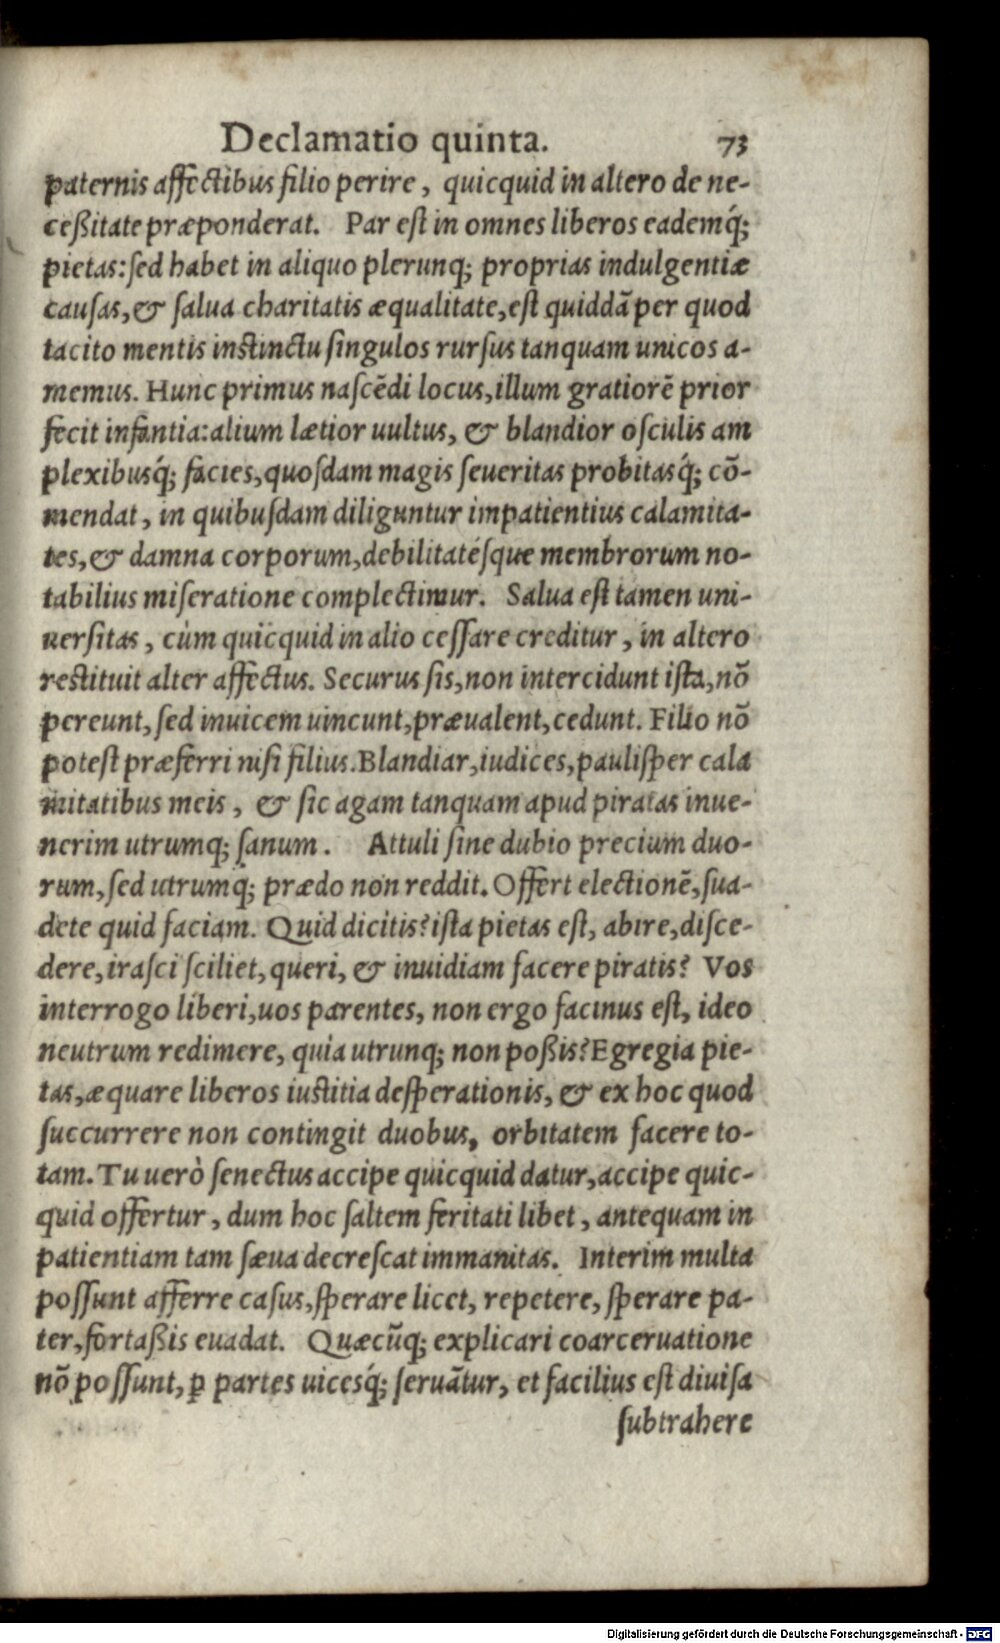 Declamatio quinta. 73
paternis affectibus filio perire, quicquid in altero de ne-
ceßitate præponderat. Par est in omnes liberos eademq́;
pietas: sed habet in aliquo plerunq; proprias indulgentiæ
causas, & salua charitatis æqualitate, est quiddā per quod
tacito mentis instinctu singulos rursus tanquam unicos a-
memus. Hunc primus nascēdi locus, illum gratiorē prior
fecit infantia: alium lætior uultus, & blandior osculis am
plexibusq́; facies, quosdam magis seueritas probitasq́; cō-
mendat, in quibusdam diliguntur impatientius calamita-
tes, & damna corporum, debilitatésque membrorum no-
tabilius miseratione complectimur. Salua est tamen uni-
uersitas, cùm quicquid in alio cessare creditur, in altero
restituit alter affectus. Securus sis, non intercidunt ista, nō
pereunt, sed inuicem uincunt, præualent, cedunt. Filio nō
potest præferri nisi filius. Blandiar, iudices, paulisper cala
mitatibus meis, & sic agam tanquam apud piratas inue-
nerim utrumq; sanum. Attuli sine dubio precium duo-
rum, sed utrumq́; prædo non reddit. Offert electionē, sua-
dete quid faciam. Quid dicitis? ista pietas est, abire, disce-
dere, irasci sciliet, queri, & inuidiam facere piratis? Vos
interrogo liberi, uos parentes, non ergo facinus est, ideo
neutrum redimere, quia utrunq; non poßis? Egregia pie-
tas, æquare liberos iustitia desperationis, & ex hoc quod
succurrere non contingit duobus, orbitatem facere to-
tam. Tu uerò senectus accipe quicquid datur, accipe quic-
quid offertur, dum hoc saltem feritati libet, antequam in
patientiam tam sæua decrescat immanitas. Interim multa
possunt afferre casus, sperare licet, repetere, sperare pa-
ter, fortaßis euadat. Quæcūq; explicari coarceruatione
nō possunt, ꝑ partes uicesq́; seruātur, et facilius est diuisa
subtrahere
Digitalisierung gefördert durch die Deutsche Forschungsgemeinschaft - DFG